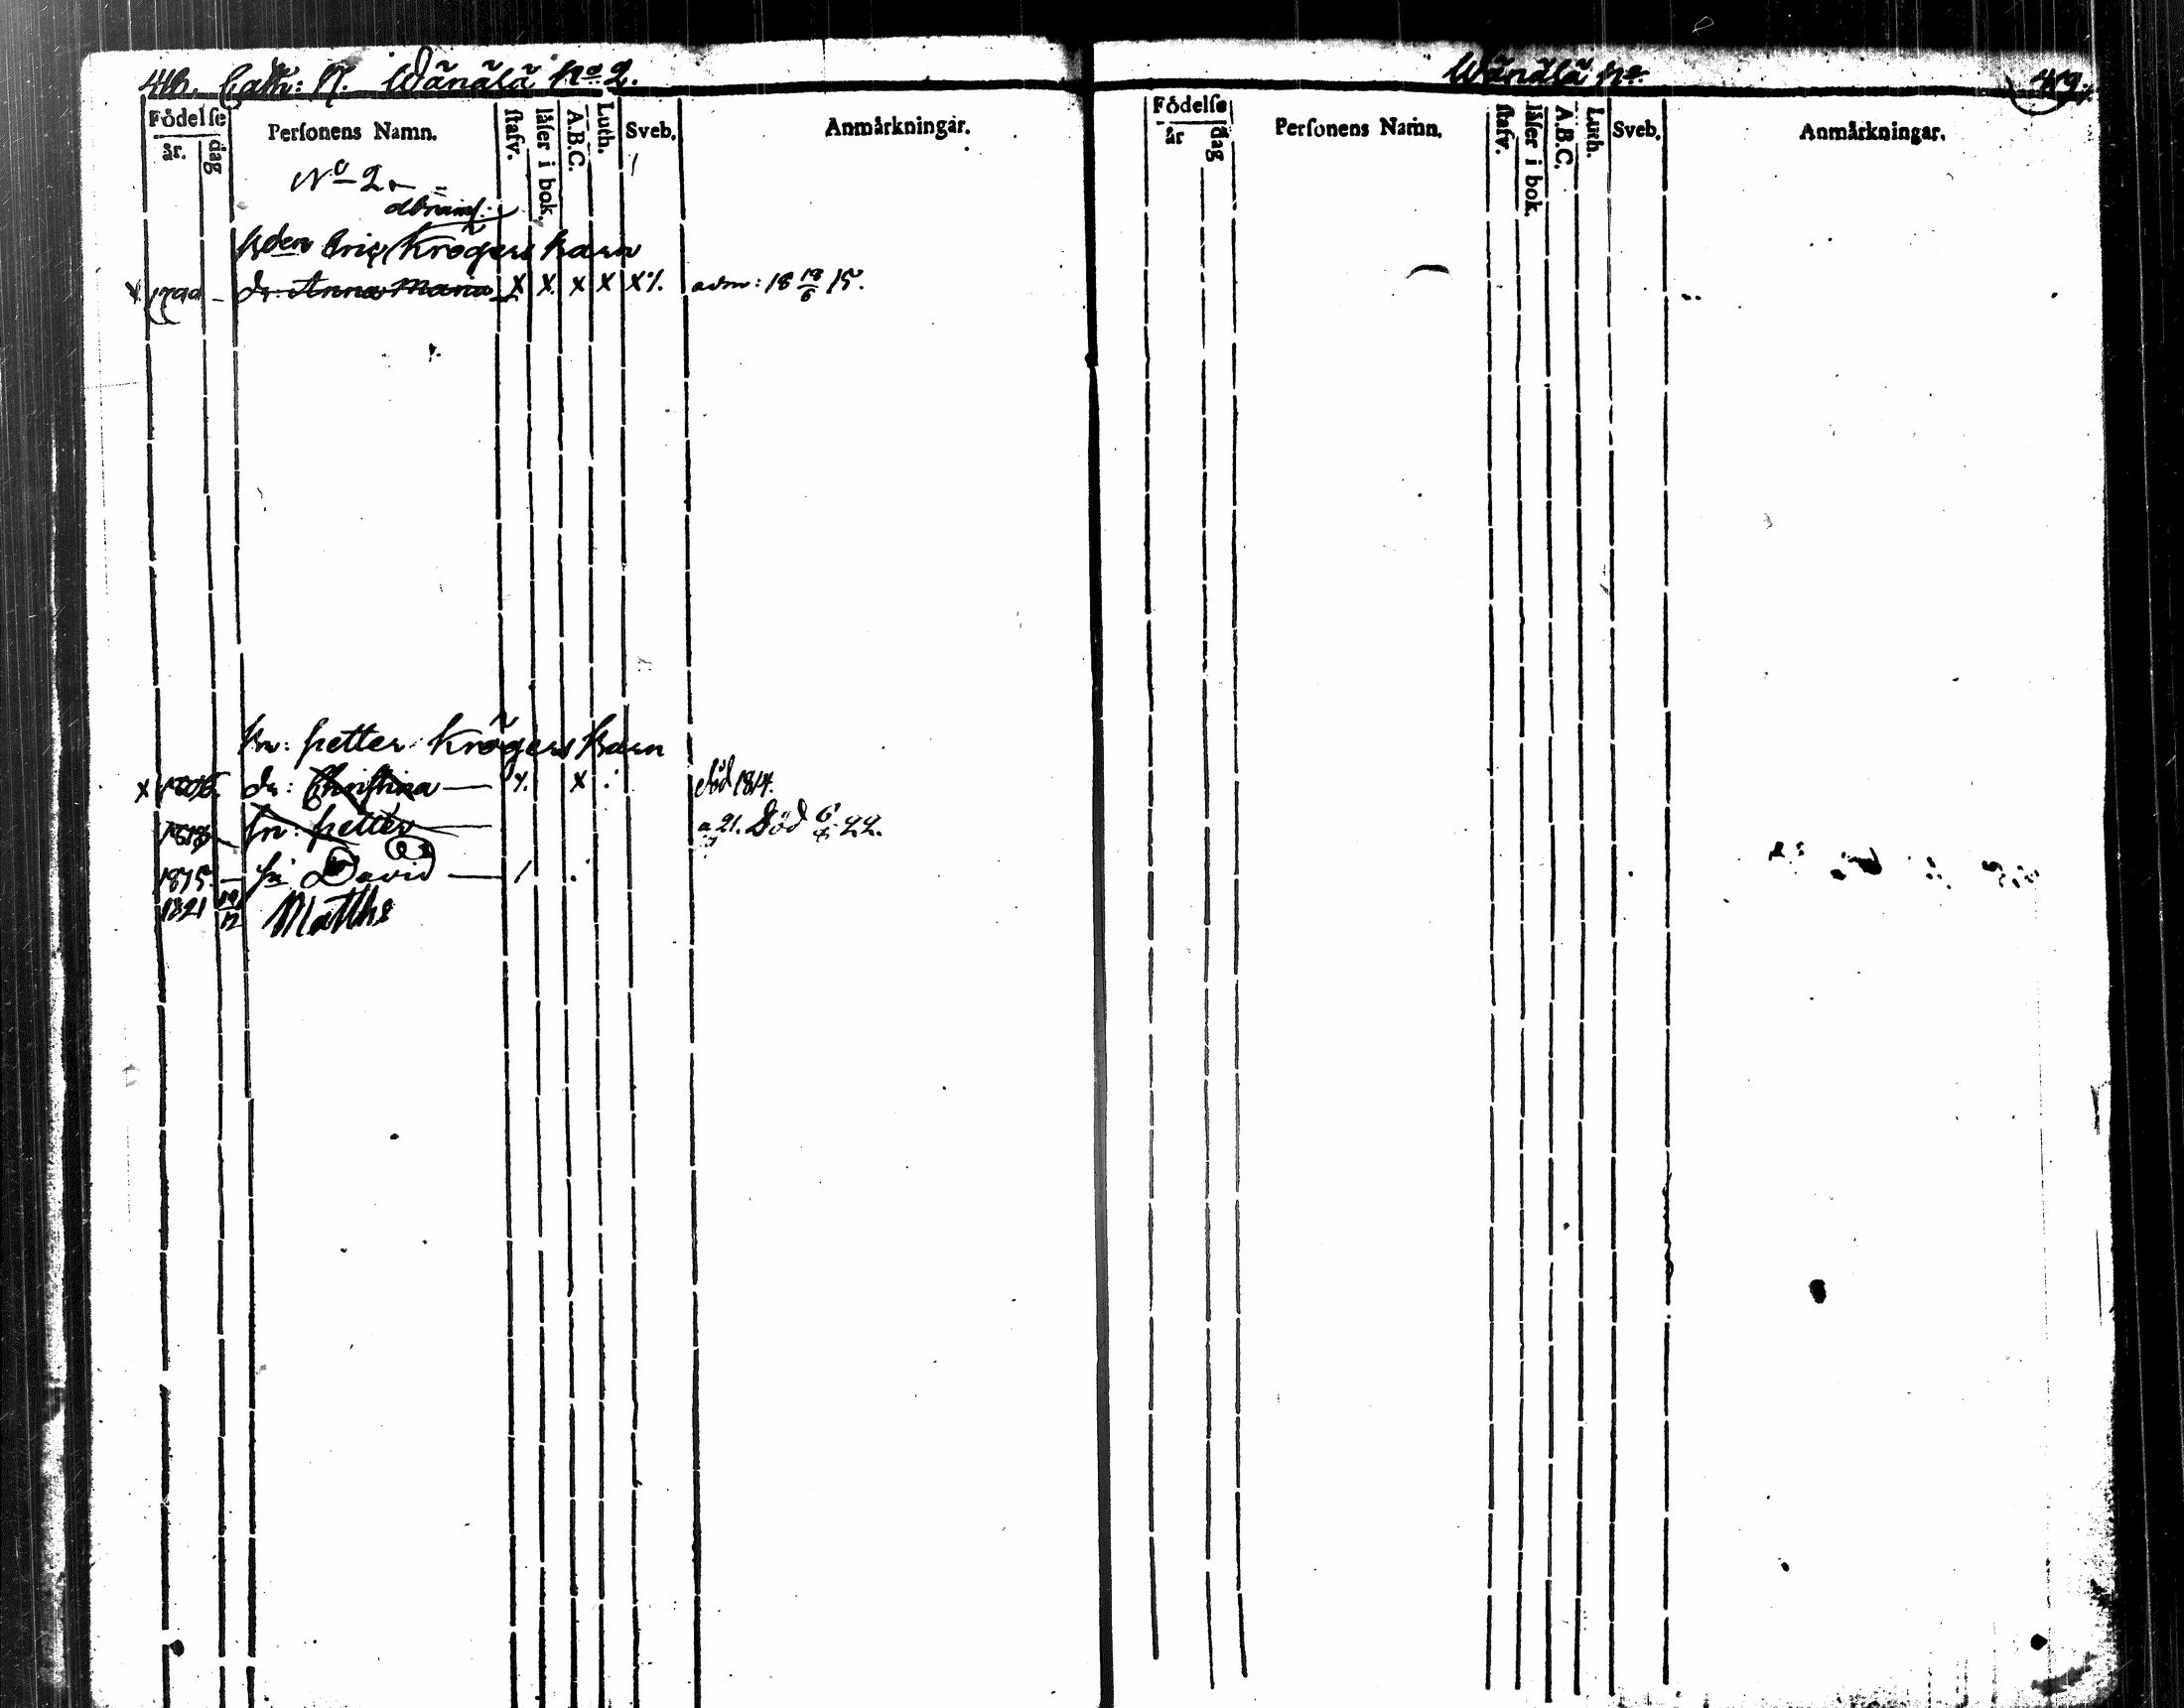 46. Cath: N. Wänälä No 2.
Födelse
år. dag Personens Namn. stafv. läser i bok. A.B.C. Luth. Sveb. Anmärkningar.
No 2
Bden Eric Krögers Barn
x dr. Anna Maria x x x x x adm: 18 18/6 15.
Bn: Petter Krögers Barn
x dr: Christina x. x död 1814.
Sn: Petter 21. Död 22.
1815. Sn David
1821 Matths
Wänälä No 47.
Födelse
år dag Personens Namn. stafv. läser i bok. A.B.C. Luth. Sveb. Anmärkningar.